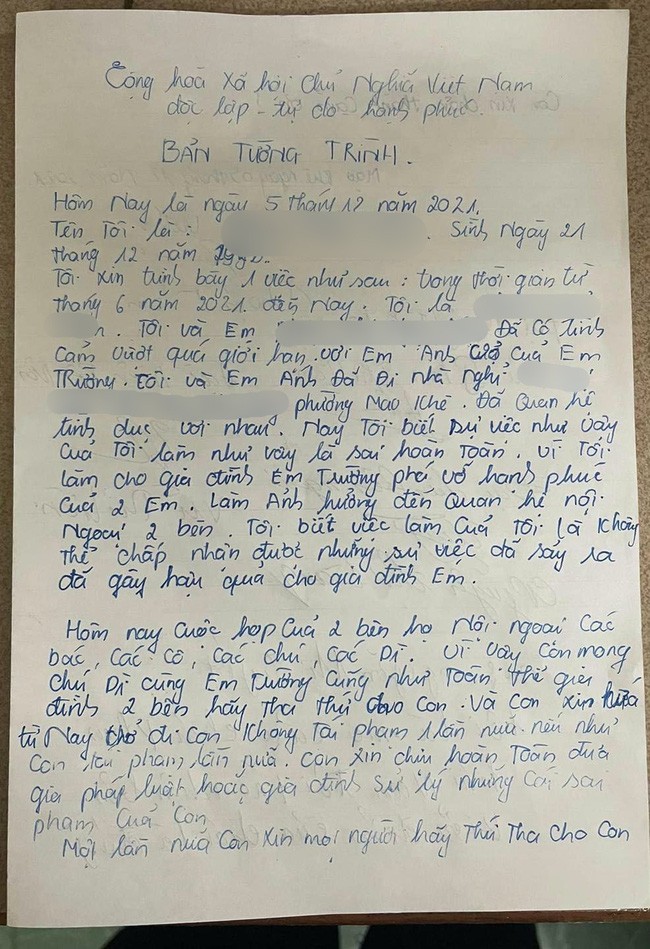 Cộng hoà Xã hội Chủ Nghĩa Việt Nam
độc lập - tự do hạnh phúc.
BẢN TƯỜNG TRÌNH.
Hôm Nay là ngày 5 tháng 12 năm 2021.
Tên Tôi là : Sinh Ngày 21
tháng 12 năm
Tôi Xin trình bày 1 việc như sau : trong thời gian từ
tháng 6 năm 2021. đến Nay. Tôi là
Tôi và Em Đã Có tình
Cảm vượt quá giới hạn với Em Anh Của Em
Trường. Tôi và Em Anh Đã Đi nhà Nghỉ
phường Mao Khê. Đã Quan hệ
tình dục với nhau. Nay Tôi biết sự việc như vậy
Của Tôi làm như vậy là sai hoàn Toàn. Vì Tôi
làm cho gia đình Em Trường phá vỡ hạnh phúc
Của 2 Em. Làm Ảnh hưởng đến Quan hệ nội
Ngoại 2 bên. Tôi biết việc làm Của Tôi là Không
thể chấp nhận được những sự việc đã sảy ra
đã gây hậu quả cho gia đình Em.
Hôm nay Cuộc họp Của 2 bên họ Nội ngoại Các
bác, Các Cô, Các chú, Các Dì. Vì vậy Con mong
chú Dì cùng Em Trường Cũng như Toàn thể gia
đình 2 bên hãy Tha thứ cho Con. Và Con Xin hứa
từ Nay trở đi Con Không Tái phạm 1 lần nữa nếu như
Con tái phạm lần nữa. Con Xin chịu hoàn Toàn đưa
gia pháp luật hoặc gia đình Sử lý những Cái sai
phạm Của Con
Một lần nữa Con Xin mọi người hãy Thứ Tha Cho Con